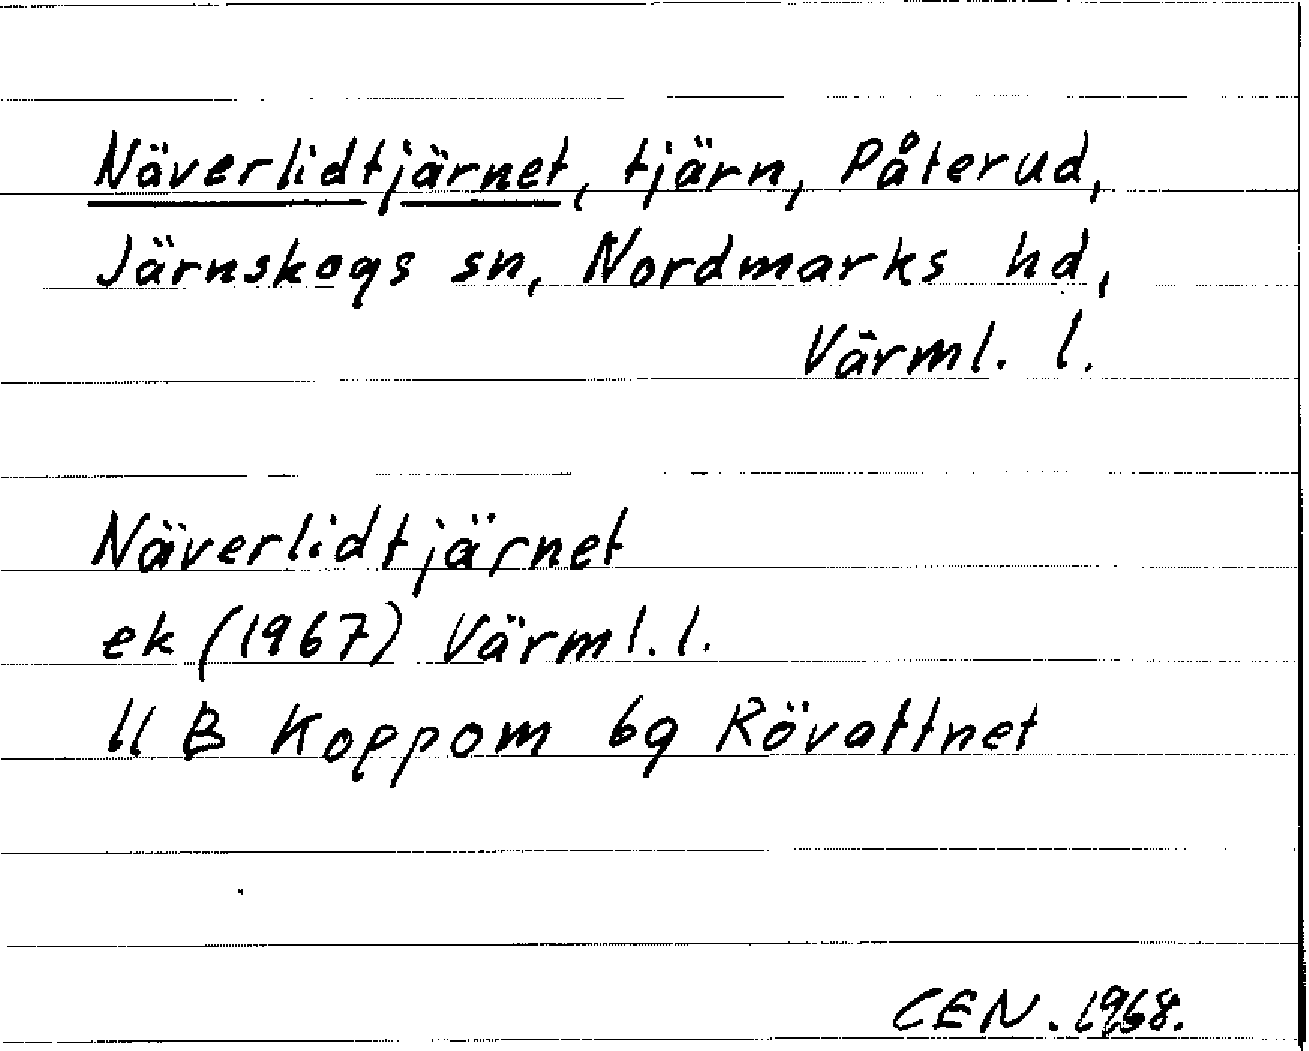 Näverlidtjärnet, tjärn, Påterud,
Järnskogs sn, Nordmarks hd,
Värml. l.
Näverlidtjärnet
ek (1967) Värml. l.
11 B Koppom 6g Rövattnet
CEN. 1968.